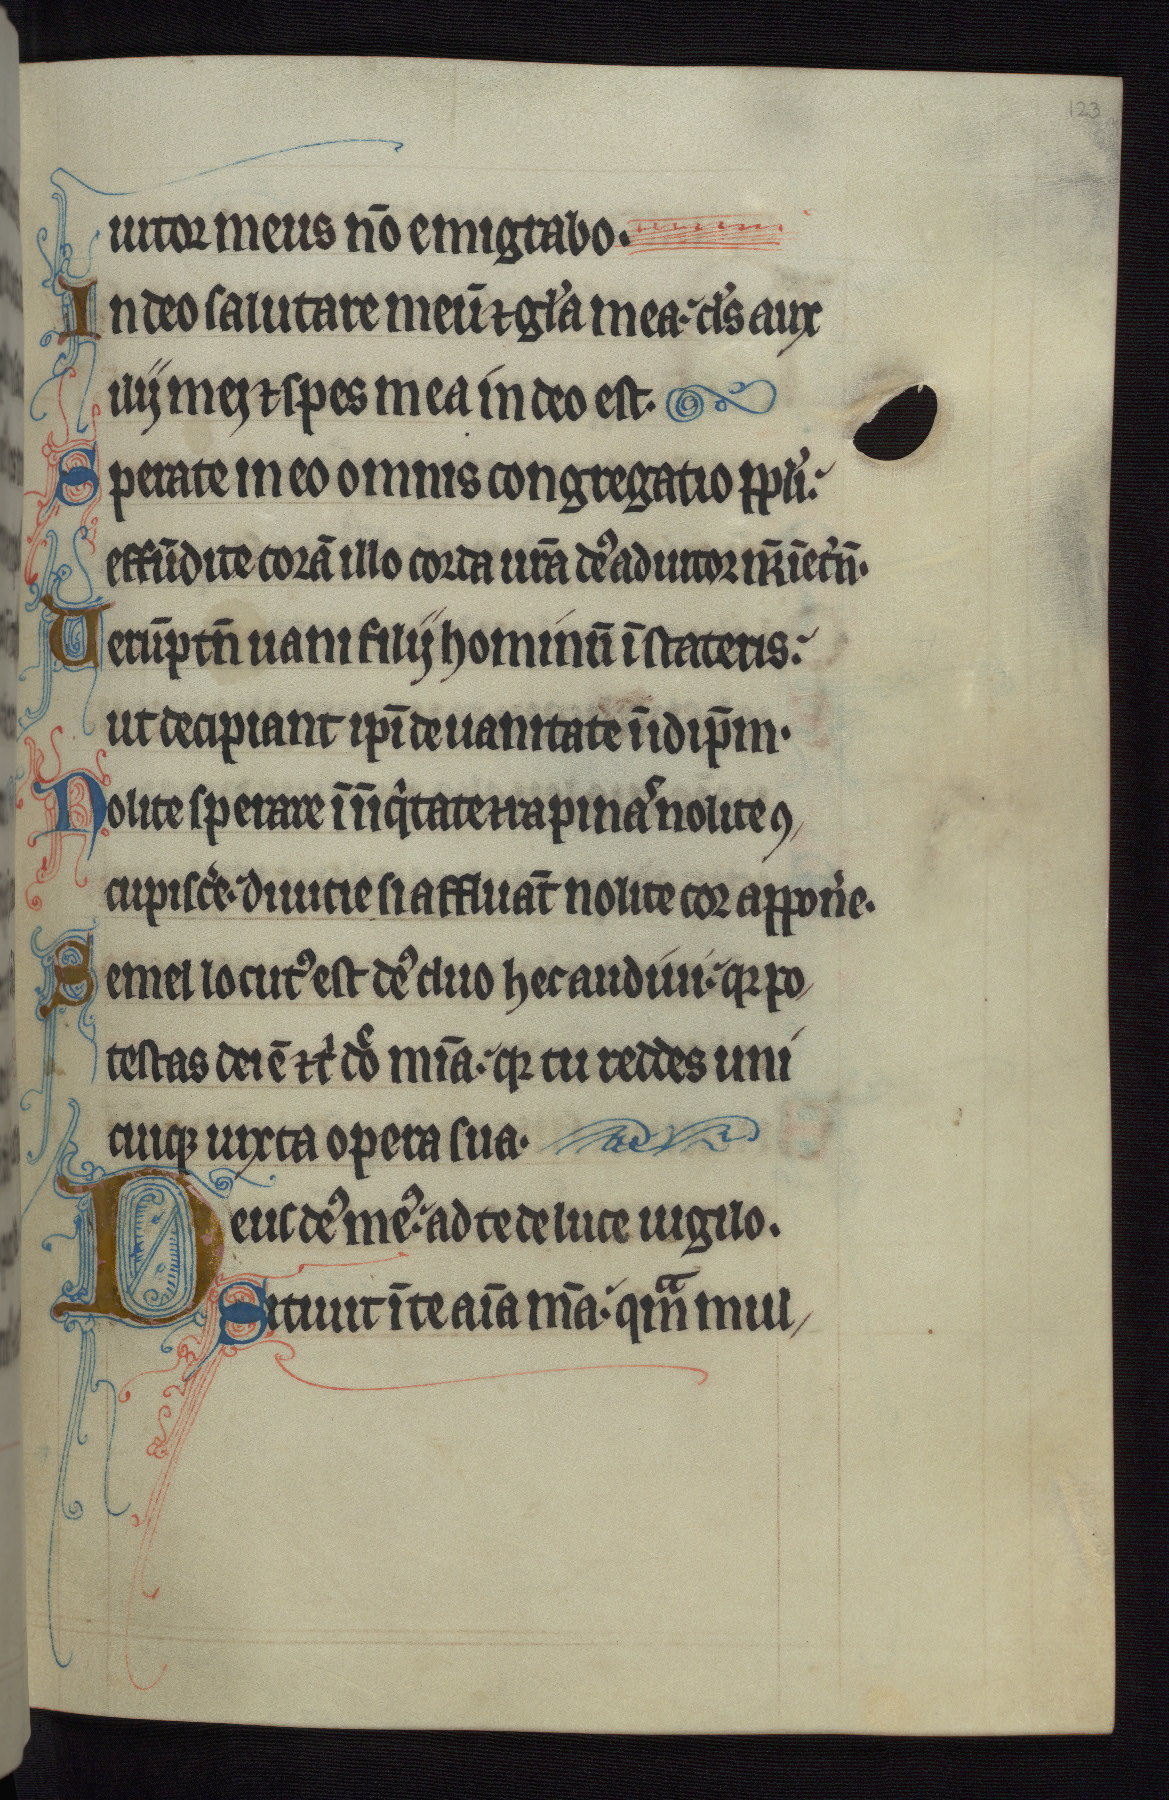 123
iutor meus nō emigrabo.
In deo salutare meū ⁊ gl̓a mea: ds̓ aux
ilij mei ⁊ spes mea in deo est.
Sperate in eo omnis congregatio ppl̓i:
effūdite corā illo corda ur̄a deꝰ adiutor nr̄ ī et̓n̄.
Uerūptn̄ uani filij hominū ī stateris:
ut decipiant ip̄i de uanitate ī idip̄m.
Nolite sperare ī īiq̓tate ⁊ rapinas nolite ꝯ
cupisc̓e: diuitie si affluāt nolite cor appon̓e.
Semel locutꝰ est deꝰ duo hec audiui: qꝛ po
testas dei ē ⁊ t̓ dō mīa: qꝛ tu reddes uni
cuiqꝫ iuxta opera sua.
Deus deꝰ meꝰ: ad te de luce uigilo.
Sitiuit ī te aīa mā: qm̄ mul